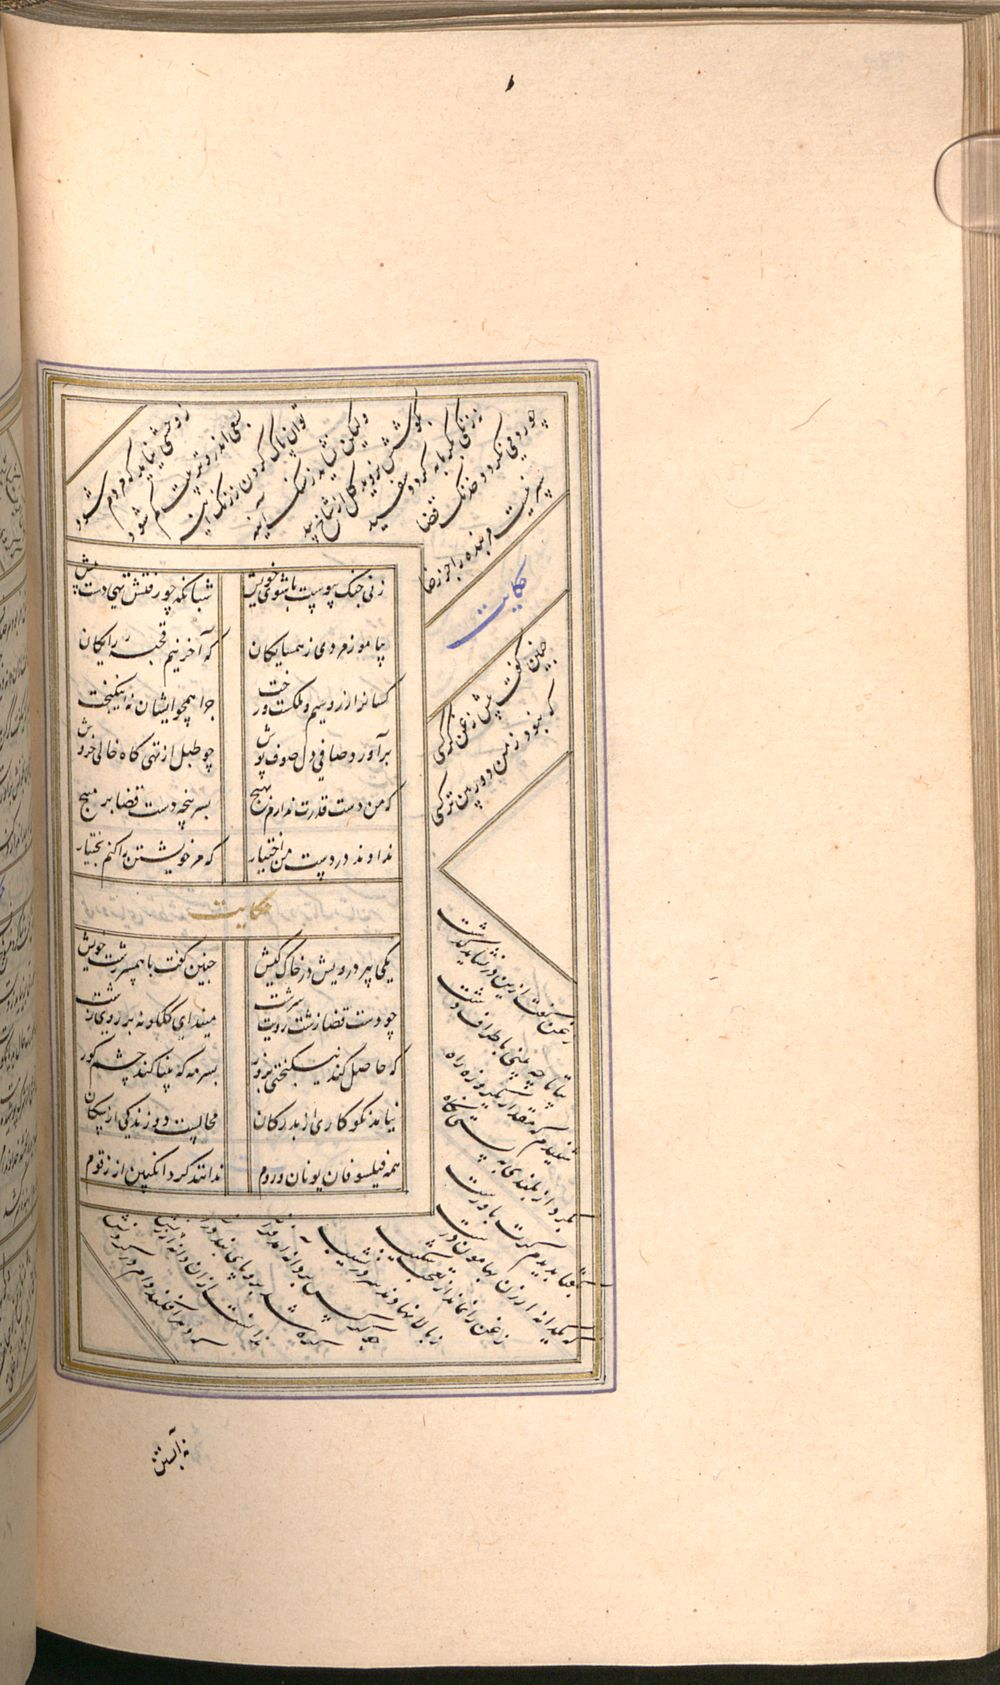 ز وحشی نیاید که مردم شود
بسعی اندرو تربیت گم شود
توان پاک کردن ز زنگ آینه
ولیکن نیاید ز سنگ آینه
بکوشش نروید گل از شاخ بید
نه زنگی بگرمابه گردد سفید
چو رد می نگردد خدنگ قضا
سپر نیست مر بنده را جز رضا
زنی جنگ پیوست با شوی خویش شبانگه چو رفتش تهی دست پیش
بیاموز مردی ز همسایگان که آخر نیم قحبه رایگان
کسانرا زر و سیم و ملکست و رخت چرا همچو ایشان نه نیکبخت
برآورد صافی دل صوف پوش چو طبل از تهی گاه خالی خروش
که من دست قدرت ندارم بهیچ بسرپنجه دست قضا بر مپیچ
ندادند در دست من اختیار که مر خویشتن را کنم بختیار
حکایت
یکی پیر درویش در خاک کیش چنین گفت با همسر زشت خویش
چو دست قضا زشت رویت سرشت میندای گلگونه بر روی زشت
که حاصل کند نیکبختی بزور بسرمه که بینا کند چشم کور
نیاید نکوکاری از بدرگان محالست دوزندگی از سگان
همه فیلسوفان یونان و روم ندانند کرد انگبین از زقوم
حکایت
چنین گفت پیش زغن کرکسی
که نبود ز من دوربین تر کسی
زغن گفت ازین در نشاید گذشت
بیا تا چه بینی باطراف دشت
شنیدم که مقدار یکروزه راه
بکرد از بلندی به پستی نگاه
بگفتا بدیدم گرت باورست
که یکدانه ارزن بهامون درست
زغن را نماند از تعجب شکیب
ز بالا نهادند سر در نشیب
چو کرکس بر دانه آمد فراز
گره شد برو پای بندی دراز
ندانست ازان دانه
که دهر افکند دام در گردنش
نه آبستن